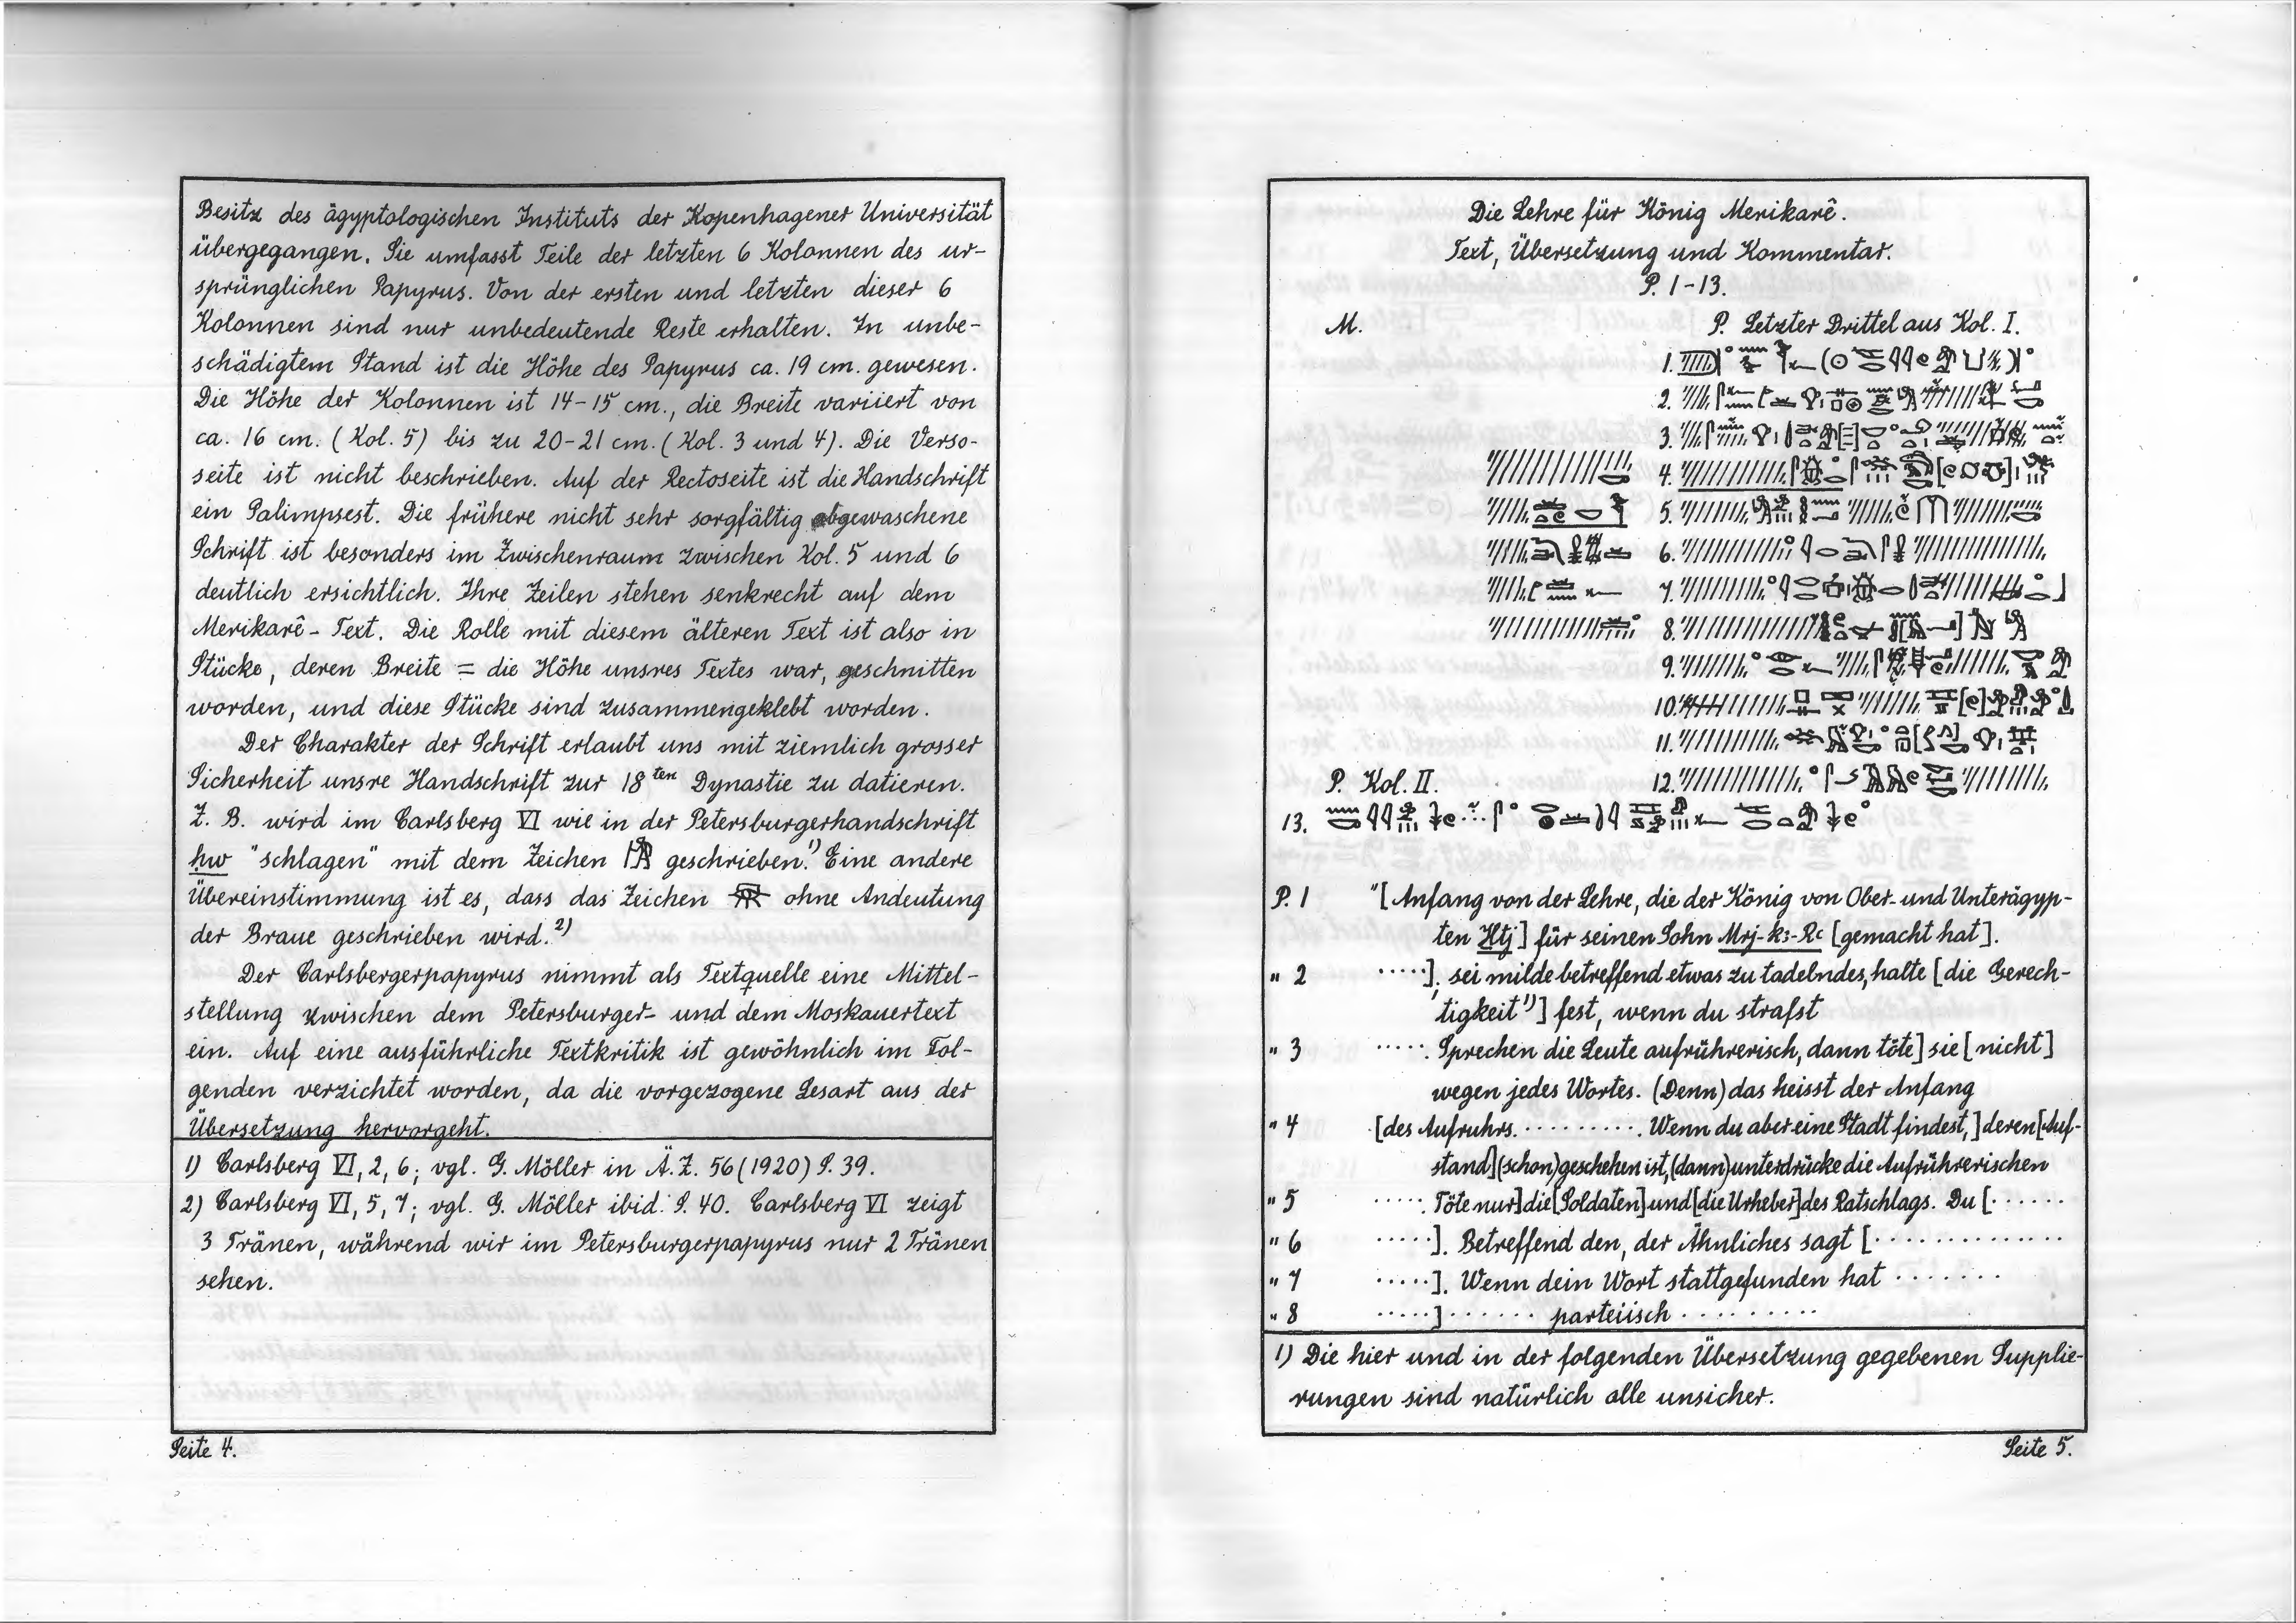 Besitz des ägyptologischen Instituts der Kopenhagener Universität
übergegangen. Sie umfasst Teile der letzten 6 Kolonnen des ur-
sprünglichen Papyrus. Von der ersten und letzten dieser 6
Kolonnen sind nur unbedeutende Reste erhalten. In unbe-
schädigtem Stand ist die Höhe des Papyrus ca. 19 cm. gewesen.
Die Höhe der Kolonnen ist 14-15 cm., die Breite variiert von
ca. 16 cm. (Kol. 5) bis zu 20-21 cm. (Kol. 3 und 4). Die Verso-
seite ist nicht beschrieben. Auf der Rectoseite ist die Handschrift
ein Palimpsest. Die frühere nicht sehr sorgfältig abgewaschene
Schrift ist besonders im Zwischenraum zwischen Kol. 5 und 6
deutlich ersichtlich. Ihre Zeilen stehen senkrecht auf dem
Merikarê-Text. Die Rolle mit diesem älteren Text ist also in
Stücke, deren Breite = die Höhe unsres Textes war, geschnitten
worden, und diese Stücke sind zusammengeklebt worden.
Der Charakter der Schrift erlaubt uns mit ziemlich grosser
Sicherheit unsre Handschrift zur 18ten Dynastie zu datieren.
Z. B. wird im Carlsberg VI wie in der Petersburgerhandschrift
ḥw "schlagen" mit dem Zeichen geschrieben.1) Eine andere
Übereinstimmung ist es, dass das Zeichen ohne Andeutung
der Braue geschrieben wird.2)
Der Carlsbergerpapyrus nimmt als Textquelle eine Mittel-
stellung zwischen dem Petersburger- und dem Moskauertext
ein. Auf eine ausführliche Textkritik ist gewöhnlich im Fol-
genden verzichtet worden, da die vorgezogene Lesart aus der
Übersetzung hervorgeht.
1) Carlsberg VI, 2, 6; vgl. G. Möller in Ä.Z. 56 (1920) S. 39.
2) Carlsberg VI, 5, 7; vgl. G. Möller ibid. S. 40. Carlsberg VI zeigt
3 Tränen, während wir im Petersburgerpapyrus nur 2 Tränen
sehen.
Seite 4.
Die Lehre für König Merikarê.
Text, Übersetzung und Kommentar.
P. 1-13.
M. P. Letzter Drittel aus Kol. I.
1.
2.
3.
4.
5.
6.
7.
8.
9.
10.
11.
P. Kol. II. 12.
13.
P. 1 "[Anfang von der Lehre, die der König von Ober- und Unterägyp-
ten Ḫtj] für seinen Sohn Mrj-kꜣ-Rꜥ [gemacht hat].
" 2 .....]; sei milde betreffend etwas zu tadelndes, halte [die Gerech-
tigkeit1)] fest, wenn du strafst
" 3 ...... Sprechen die Leute aufrührerisch, dann töte] sie [nicht]
wegen jedes Wortes. (Denn) das heisst der Anfang
" 4 [des Aufruhrs. .......... Wenn du aber eine Stadt findest,] deren [Auf-
stand] (schon) geschehen ist, (dann) unterdrücke die Aufrührerischen
" 5 ...... Töte nur] die [Soldaten] und [die Urheber] des Ratschlags. Du [......
" 6 .....]. Betreffend den, der Ähnliches sagt [..............
" 7 .....]. Wenn dein Wort stattgefunden hat .......
" 8 .....] ...... parteiisch ..........
1) Die hier und in der folgenden Übersetzung gegebenen Supplie-
rungen sind natürlich alle unsicher.
Seite 5.